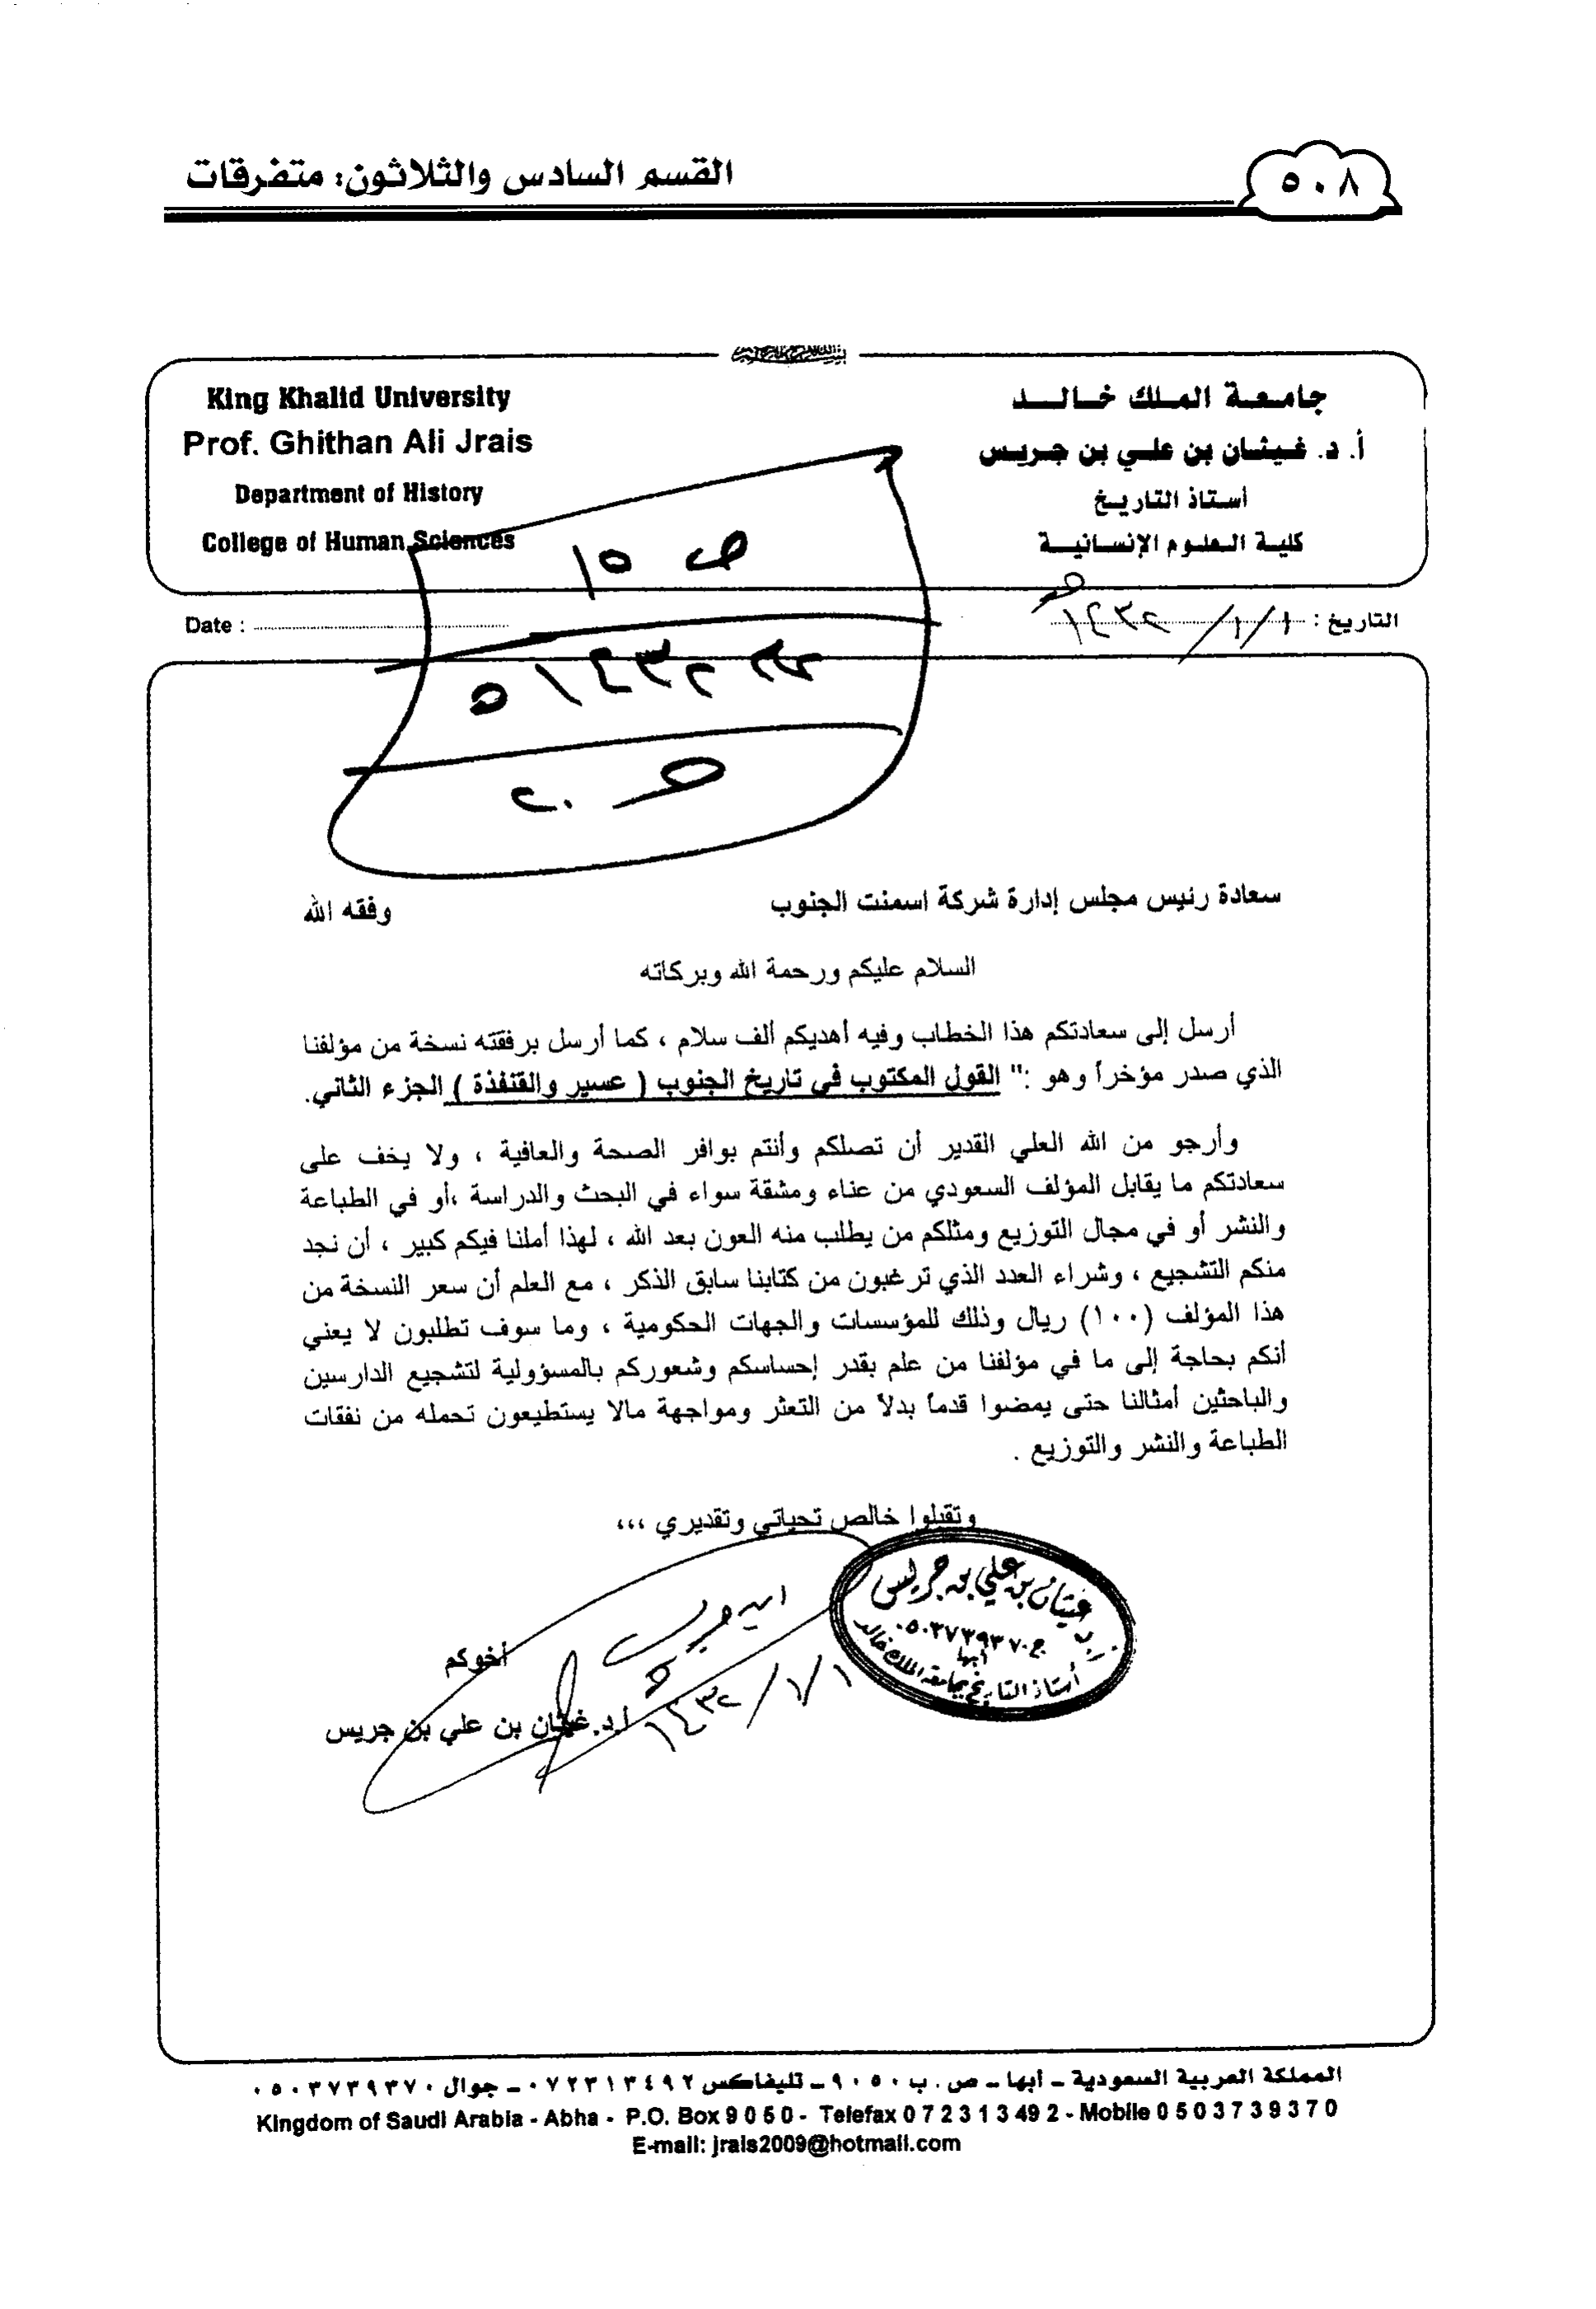 القسم السادس والثلاثون: متفرقات
٥٠٨
King Khalid University
Prof. Ghithan Ali Jrais
Department of History
College of Human Sciences
جامعة الملك خالد
أ. د. غيثان بن علي بن جريس
أستاذ التاريخ
كلية العلوم الإنسانية
Date :
التاريخ : ١/١/١٤٣٢هـ
ص ١٥
١٤٣٢هـ
سعادة رئيس مجلس إدارة شركة اسمنت الجنوب وفقه الله
السلام عليكم ورحمة الله وبركاته
أرسل إلى سعادتكم هذا الخطاب وفيه أهديكم ألف سلام ، كما أرسل برفقته نسخة من مؤلفنا
الذي صدر مؤخراً وهو :" القول المكتوب في تاريخ الجنوب ( عسير والقنفذة ) الجزء الثاني.
وأرجو من الله العلي القدير أن تصلكم وأنتم بوافر الصحة والعافية ، ولا يخف على
سعادتكم ما يقابل المؤلف السعودي من عناء ومشقة سواء في البحث والدراسة ،أو في الطباعة
والنشر أو في مجال التوزيع ومثلكم من يطلب منه العون بعد الله ، لهذا أملنا فيكم كبير ، أن نجد
منكم التشجيع ، وشراء العدد الذي ترغبون من كتابنا سابق الذكر ، مع العلم أن سعر النسخة من
هذا المؤلف (١٠٠) ريال وذلك للمؤسسات والجهات الحكومية ، وما سوف تطلبون لا يعني
أنكم بحاجة إلى ما في مؤلفنا من علم بقدر إحساسكم وشعوركم بالمسؤولية لتشجيع الدارسين
والباحثين أمثالنا حتى يمضوا قدماً بدلاً من التعثر ومواجهة مالا يستطيعون تحمله من نفقات
الطباعة والنشر والتوزيع .
وتقبلوا خالص تحياتي وتقديري ،،،
غيثان بن علي بن جريس
ج ٠٥٠٣٧٣٩٣٧٠
أبها
أستاذ التاريخ بجامعة الملك خالد
ابن جريس
١/١/١٤٣٢هـ
أخوكم
أ.د. غيثان بن علي بن جريس
المملكة العربية السعودية ـ أبها ـ ص . ب ٩٠٥٠ ـ تليفاكس ٠٧٢٣١٣٤٩٢ ـ جوال ٠٥٠٣٧٣٩٣٧٠
Kingdom of Saudi Arabia - Abha - P.O. Box 9050 - Telefax 072313492 - Mobile 0503739370
E-mail: jrais2009@hotmail.com